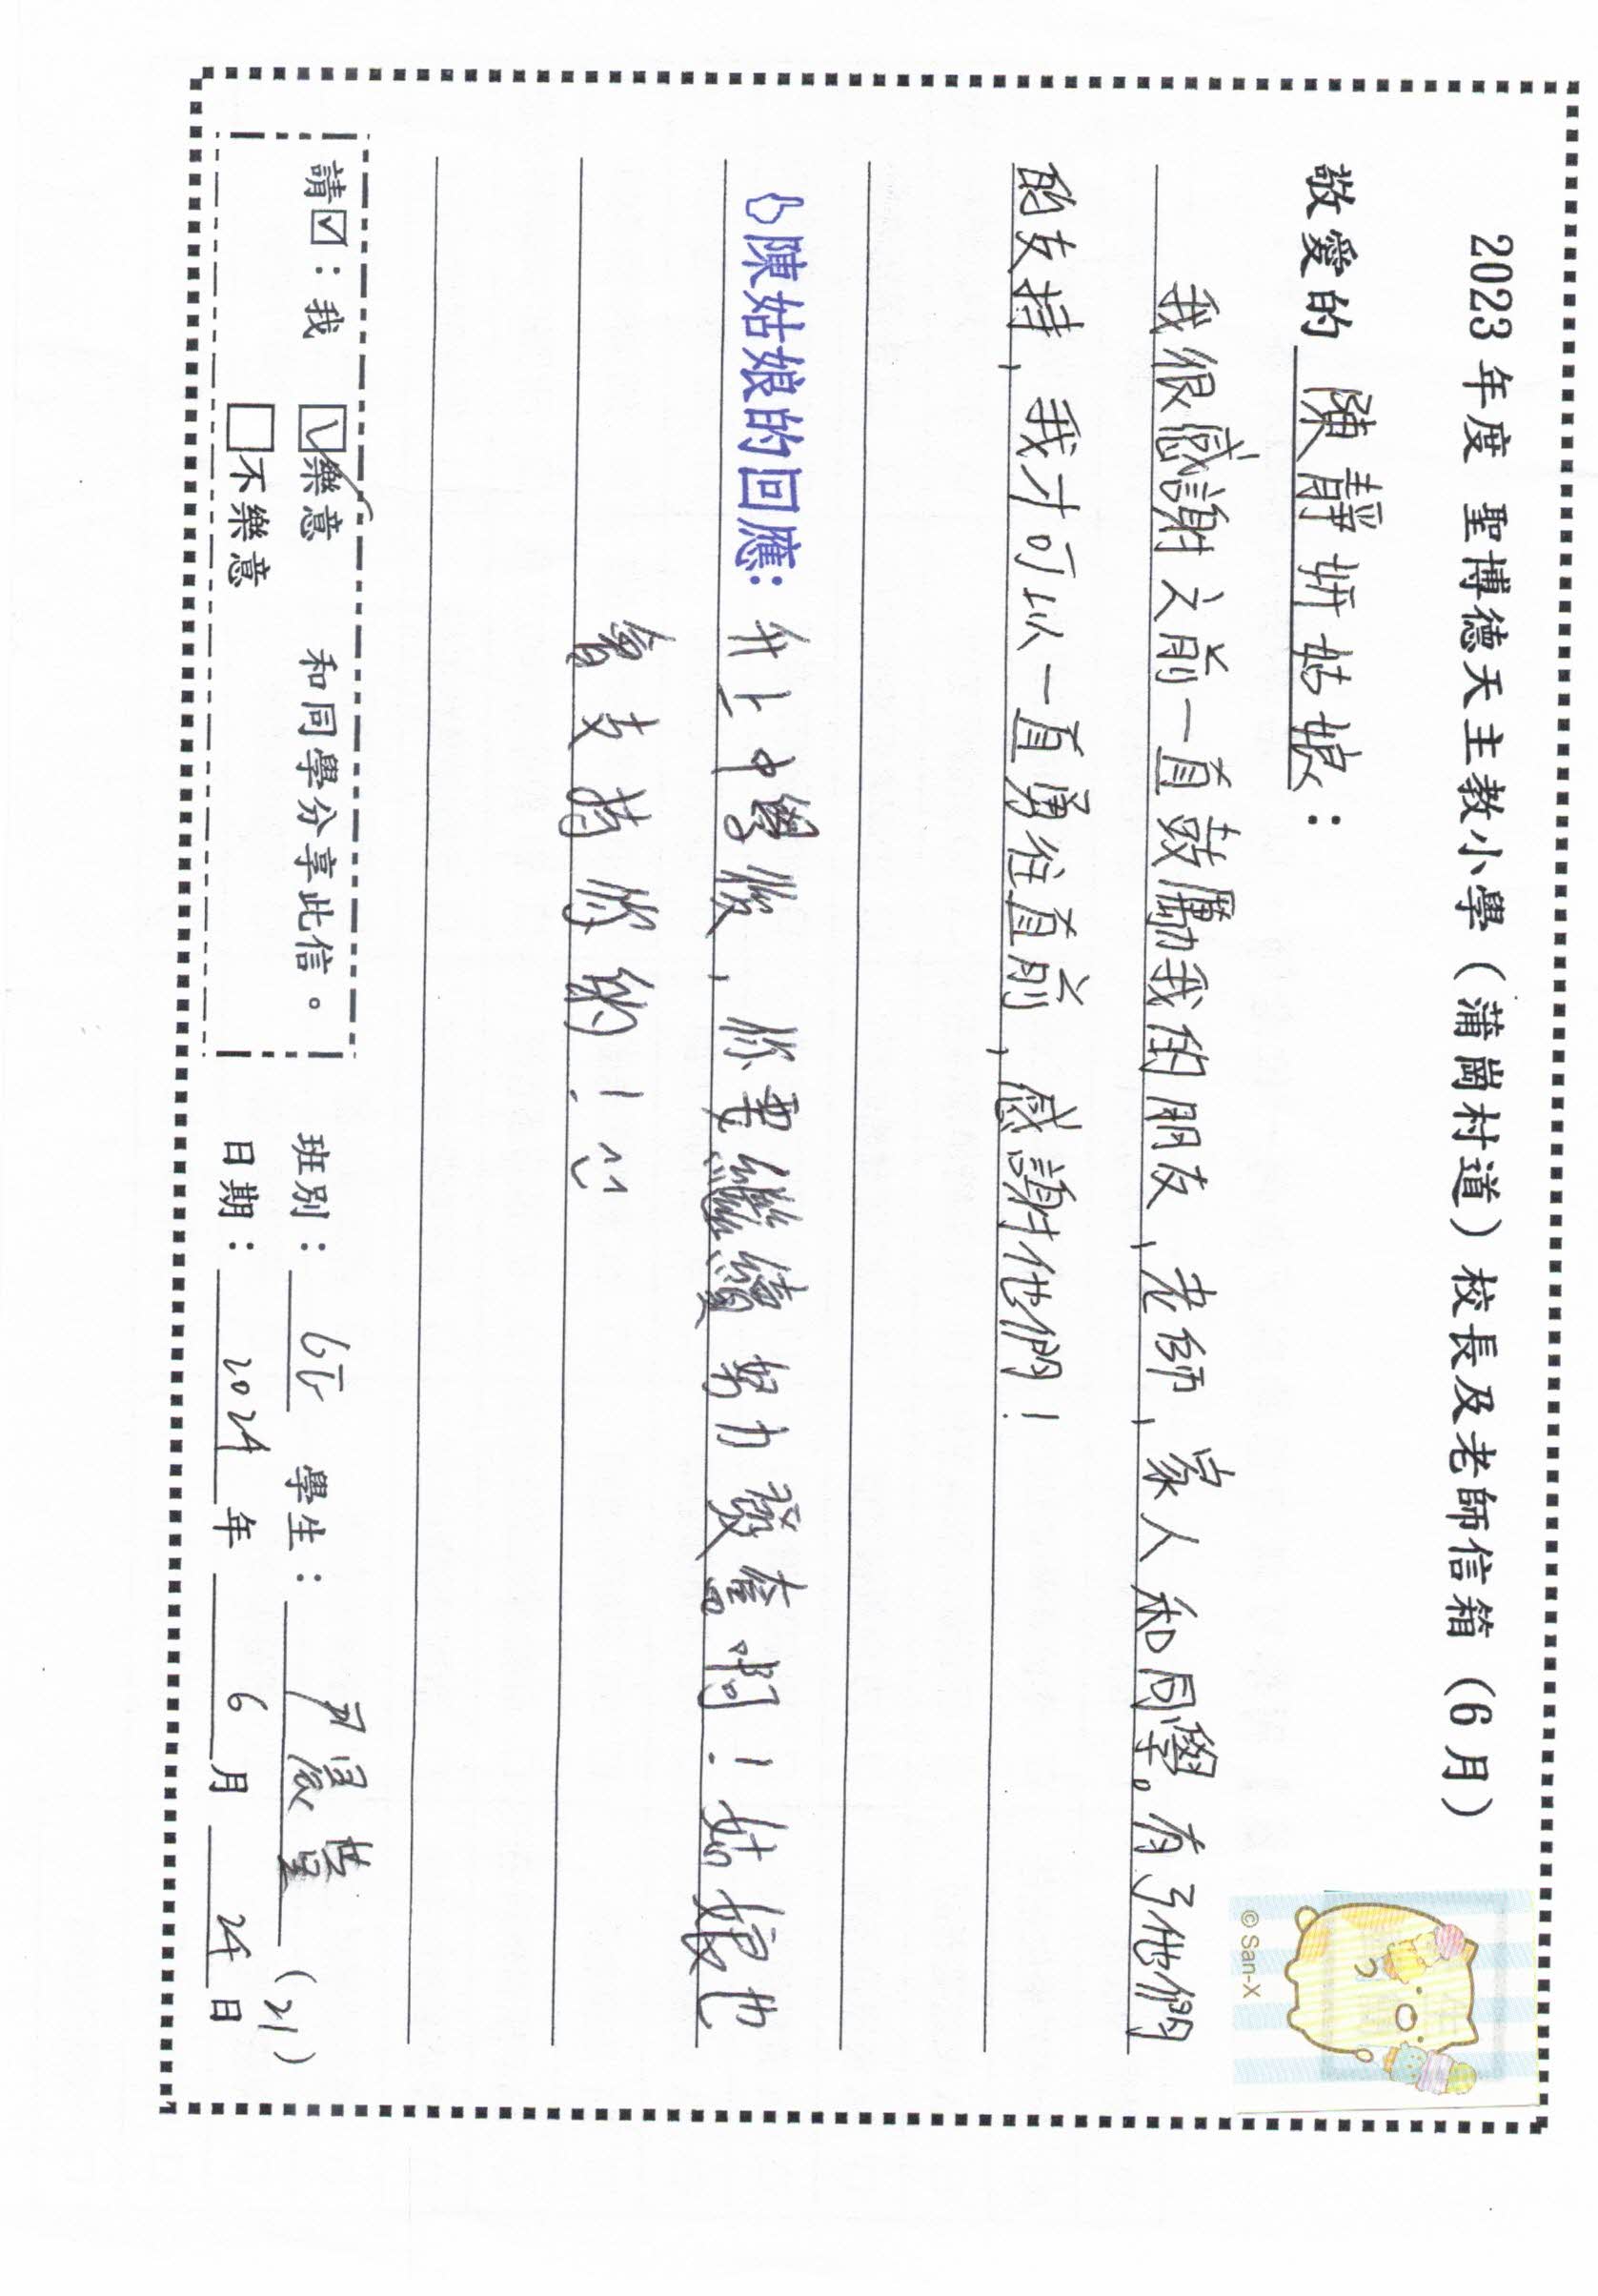 2023 年度 聖博德天主教小學（蒲崗村道）校長及老師信箱（6月）
敬愛的 陳靜妍姑娘：
我很感謝之前一直鼓勵我的朋友、老師、家人和同學。有了他們
的支持，我才可以一直勇往直前，感謝他們！
陳姑娘的回應：升上中學後，你要繼續努力發奮啊！姑娘也
會支持你的！
請☑：我 ☑樂意 和同學分享此信。
☐不樂意
班別： 學生： (21)
日期：2024年6月24日
© San-X